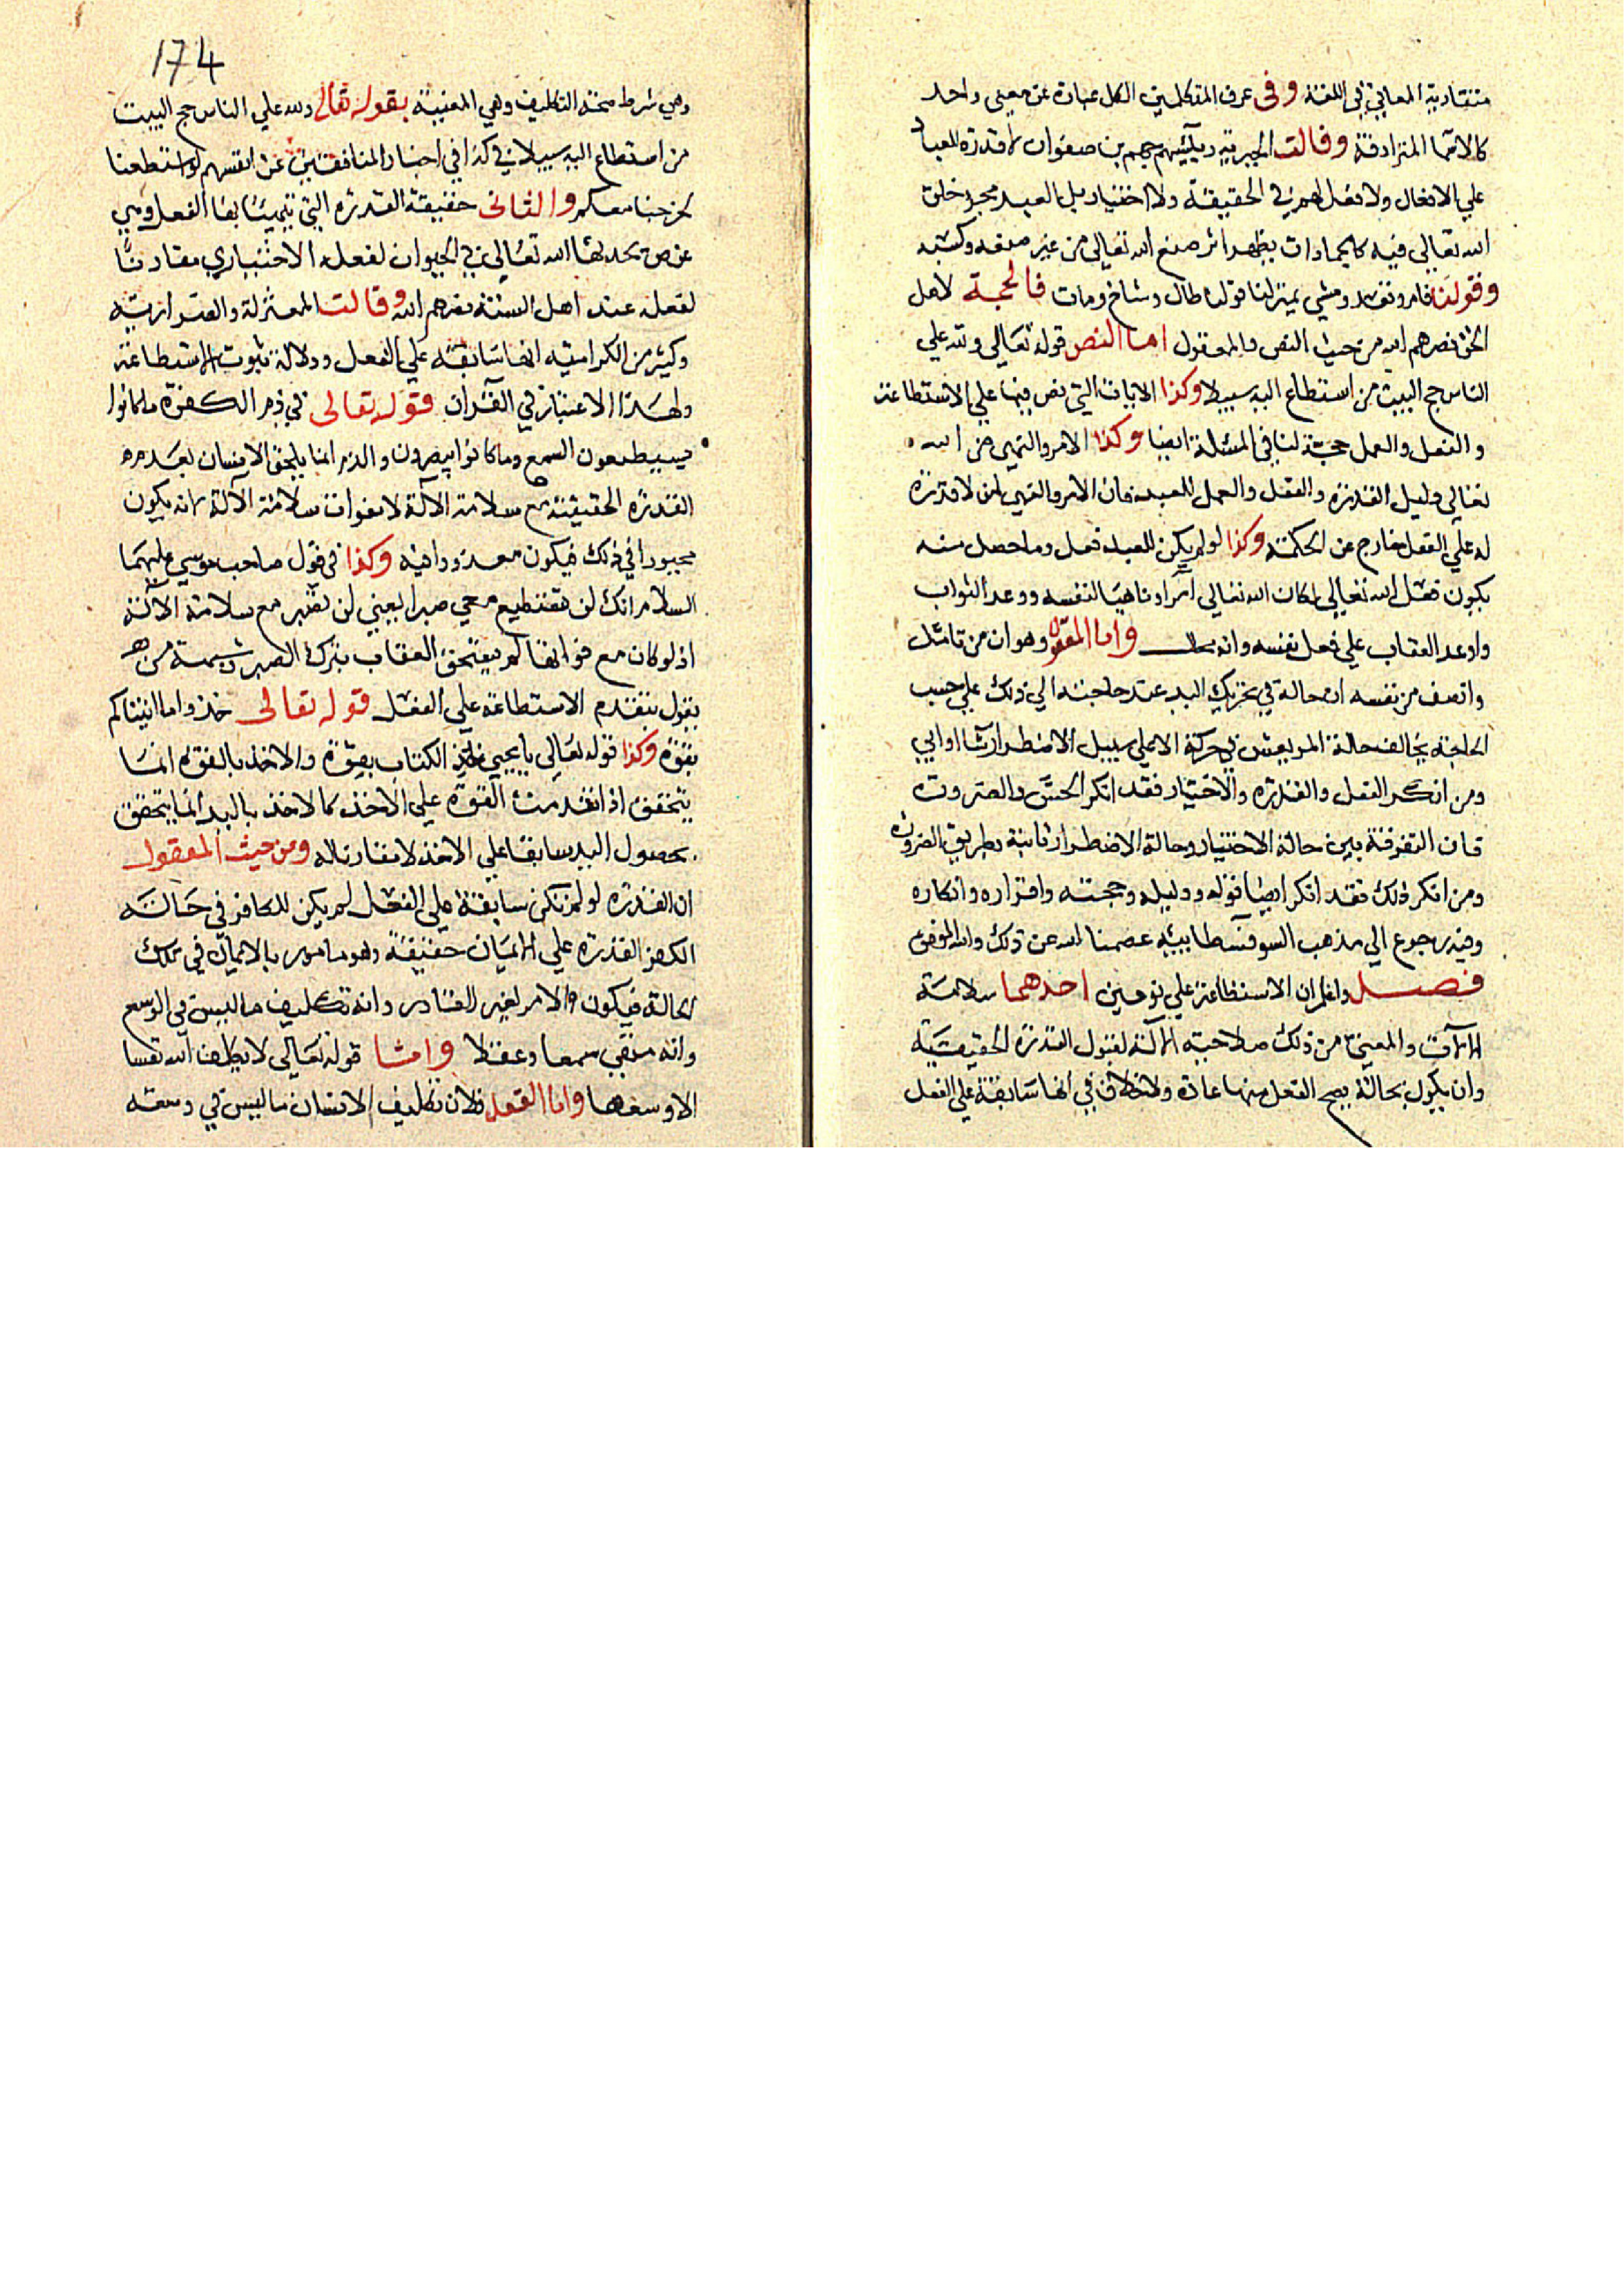 متقاربة المعاني في اللغة وفى عرف المتكلمين الكل عبارة عن معنى واحد
كالاسما المترادفة وقالت الجبرية ورئيسهم جهم بن صفوان لا قدرة للعباد
علي الافعال ولا فعل لهم في الحقيقة ولا اختيار بل العبد مجرد خلق
الله تعالى فيه كالجمادات يظهر اثر صنع الله تعالى من غير صنعه وكسبه
وقولنا قام وقعد ومشي بمنزلة قولنا طال وشاخ ومات فالحجة لاهل
الحق نصرهم الله من حيث النص والمعقول اما النص قوله تعالى ولله علي
الناس حج البيت من استطاع اليه سبيلا وكذا الايات التي نص فيها علي الاستطاعة
والفعل والعمل حجة لنا في المسئلة ايضا وكذا الامر والنهي من الله
تعالي دليل القدرة والفعل والعمل للعبد فان الامر والنهي لمن لا قدرة
له علي الفعل خارج عن الحكمة وكذا لو لم يكن للعبد فعل وما حصل منه
يكون فعل الله تعالي لكان الله تعالي آمرا وناهيا لنفسه ووعد الثواب
واوعد العقاب علي فعل نفسه وانه محال واما المعقول وهو ان من تامل
وانصف من نفسه ان حالة في تحريك اليد عند حاجته الي ذلك علي حسب
الحاجة يخالف حالة المرتعش في حركة الا علي سبيل الاضطرار شا او ابي
ومن انكر الفعل والقدرة والاختيار فقد انكر الحس والضرورة
فان التفرقة بين حالة الاختيار وحالة الاضطرار ثابتة بطريق الضرورة
ومن انكر ذلك فقد انكر ايضا قوله ودليله وحجته واقراره وانكاره
وفيه رجوع الي مذهب السوفسطايية عصمنا الله عن ذلك والله الموفق
فصل واعلم ان الاستطاعة علي نوعين احدهما سلامة
الآلات والمعنى من ذلك صلاحية الآلة لقبول القدرة الحقيقية
وان يكون بحالة يصح الفعل منها عادة ولا خلاف في انها سابقة علي الفعل
174
وهي شرط صحة التكليف وهي المعنية بقوله تعالى ولله علي الناس حج البيت
من استطاع اليه سبيلا وكذا في اخبار المنافقين عن انفسهم لو استطعنا
لخرجنا معكم والثانى حقيقة القدرة التي يتهيئا بها الفعل وهي
عرض يحدثها الله تعالي في الحيوان لفعله الاختياري مقارنًا
لفعله عند اهل السنة نصرهم الله وقالت المعتزلة والضرارية
وكثير من الكرامية انها سابقة علي الفعل ودلالة ثبوت الاستطاعة
ولهذا الاعتبار في القرآن قوله تعالى في ذم الكفرة ما كانوا
يستطيعون السمع وما كانوا يبصرون والذم انما يلحق الانسان بعدم
القدرة الحقيقية مع سلامة الآلة لا بفوات سلامة الآلة لانه يكون
مجبورا في ذلك فيكون معذورا فيه وكذا في قول صاحب موسي عليهما
السلام انك لن تستطيع معي صبرا يعني لن تصبر مع سلامة الآلة
اذ لو كان مع فواتها لم يستحق العقاب بترك الصبر وشبهة من
يقول بتقدم الاستطاعة علي الفعل قوله تعالى خذوا ما اتيناكم
بقوة وكذا قوله تعالي يا يحيي خذ الكتاب بقوة والاخذ بالقوة انما
يتحقق اذا تقدمت القوة علي الاخذ كالاخذ باليد انما يتحقق
بحصول اليد سابقا علي الاخذ لا مقارنا له ومن حيث المعقول
ان القدرة لو لم تكن سابقة علي الفعل لم يكن للكافر في حالة
الكفر القدرة علي الايمان حقيقة وهو مامور بالايمان في تلك
الحالة فيكون الامر لغير القادر وانه تكليف ما ليس في الوسع
وانه منفي سمعا وعقلا واما قوله تعالى لا يكلف الله نفسا
الا وسعها واما العقل فلان تكليف الانسان ما ليس في وسعه